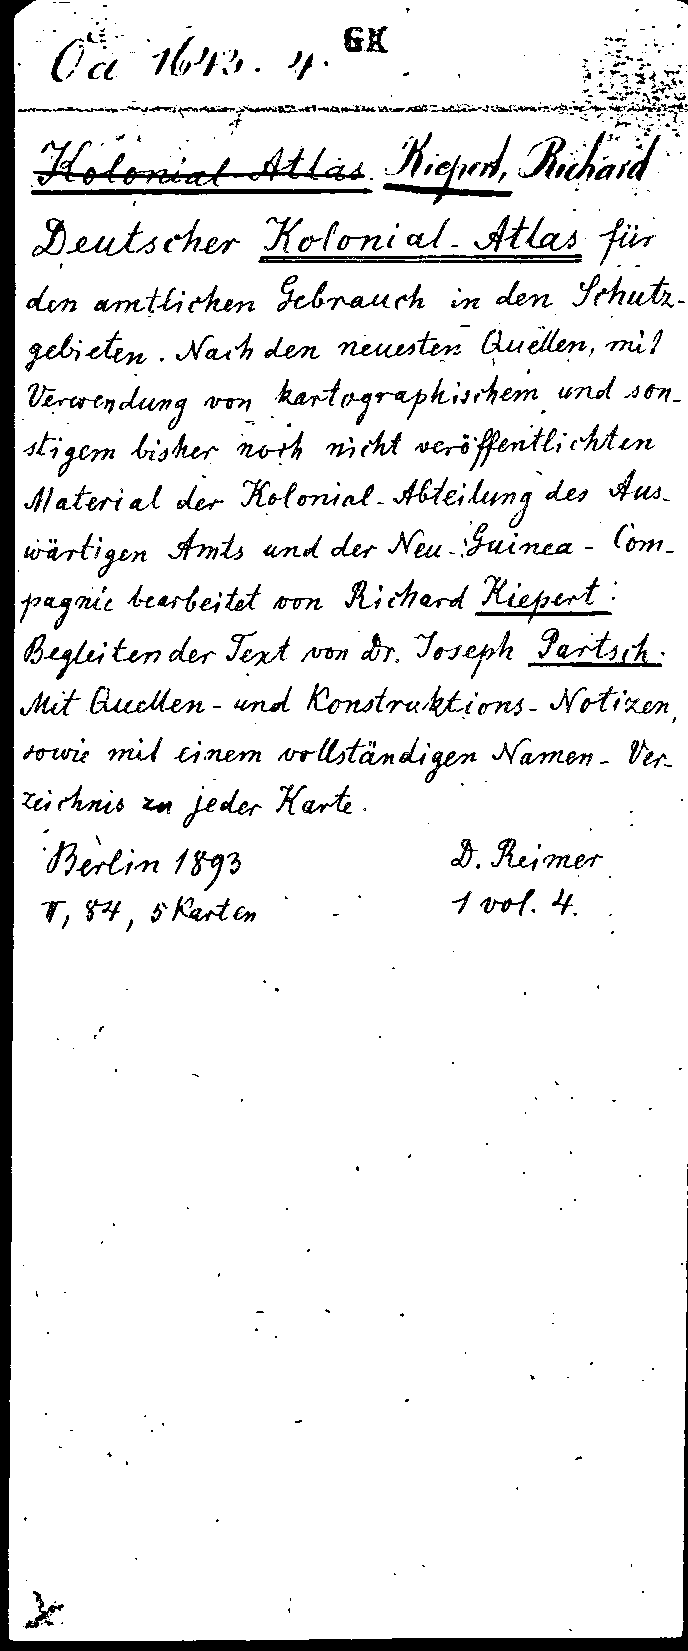 GK
Oa 1643. 4.
Kolonial-Atlas. Kiepert, Richard
Deutscher Kolonial-Atlas für
den amtlichen Gebrauch in den Schutz-
gebieten. Nach den neuesten Quellen, mit
Verwendung von kartographischem und son-
stigem bisher noch nicht veröffentlichten
Material der Kolonial-Abteilung des Aus-
wärtigen Amts und der Neu-Guinea-Com-
pagnie bearbeitet von Richard Kiepert.
Begleitender Text von Dr. Joseph Partsch.
Mit Quellen- und Konstruktions-Notizen,
sowie mit einem vollständigen Namen-Ver-
zeichnis zu jeder Karte.
Berlin 1893 D. Reimer
V, 84, 5 Karten 1 vol. 4.